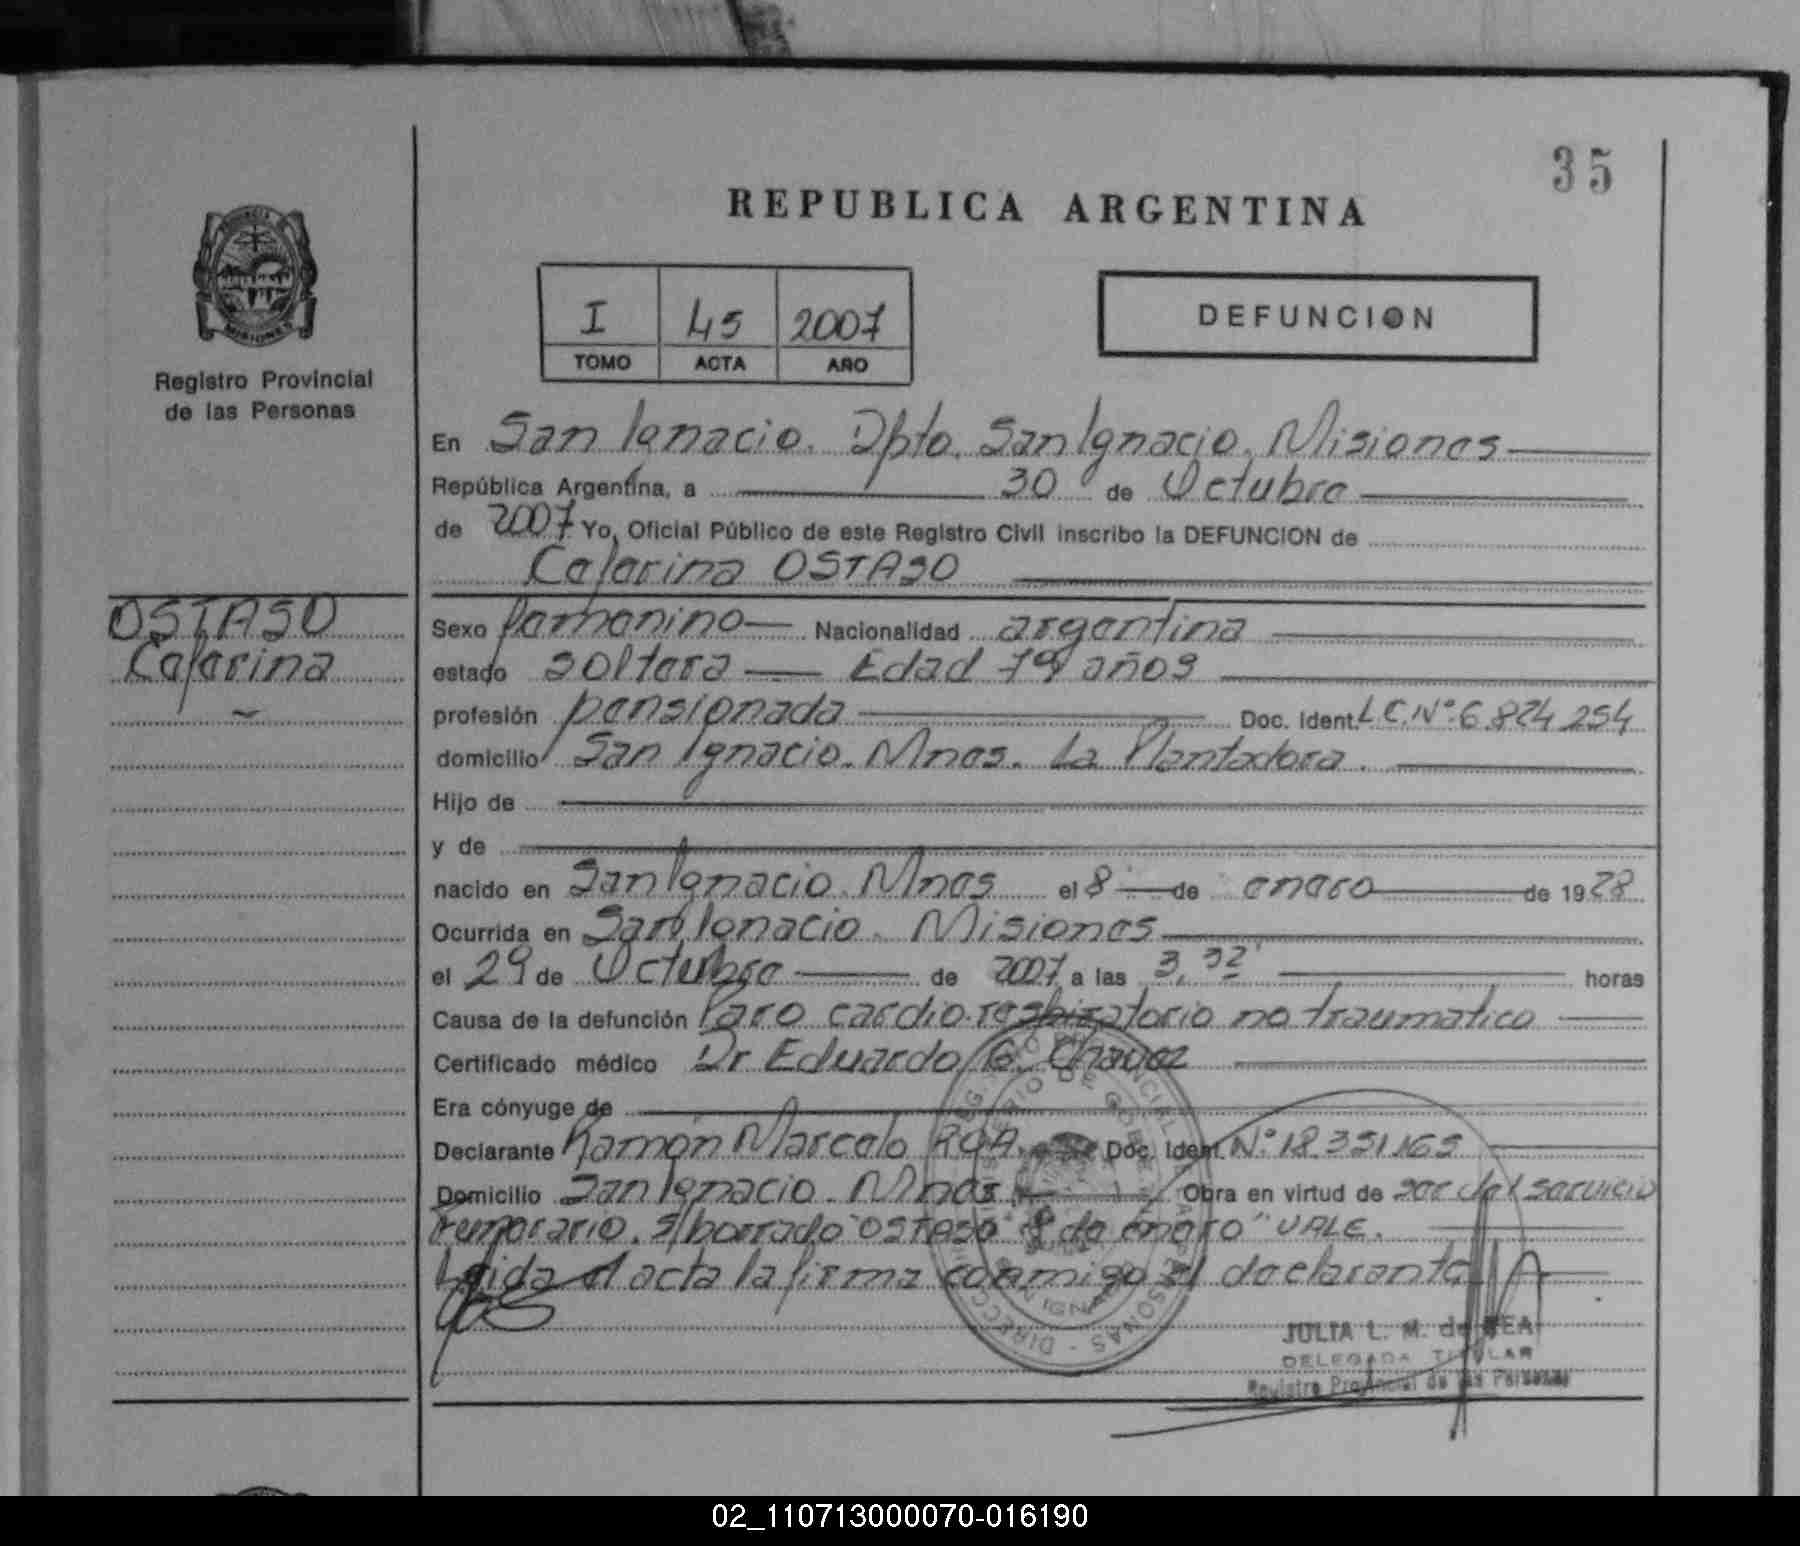 35
REPUBLICA ARGENTINA
PROVINCIA
MISIONES
Registro Provincial
de las Personas
I 45 2007
TOMO ACTA AÑO
DEFUNCION
En San Ignacio. Dpto. San Ignacio. Misiones
República Argentina, a 30 de Octubre
de 2007 Yo, Oficial Público de este Registro Civil inscribo la DEFUNCION de
Catarina OSTASO
OSTASO
Catarina
Sexo femenino Nacionalidad argentina
estado soltera Edad 79 años
profesión pensionada Doc. Ident. L.C. Nº 6.824.254
domicilio San Ignacio. Mnes. La Plantadora.
Hijo de
y de
nacido en San Ignacio. Mnes el 8 de enero de 1928
Ocurrida en San Ignacio. Misiones
el 29 de Octubre de 2007 a las 3,32' horas
Causa de la defunción Paro cardio-respiratorio no traumatico
Certificado médico Dr Eduardo G. Chavez
Era cónyuge de
Declarante Ramón Marcelo ROA. Doc. Ident. Nº 18.351.165
Domicilio San Ignacio. Mnes Obra en virtud de ser del servicio
funerario. S/borrado "OSTASO" "8 de enero" VALE.
Leida el acta la firma conmigo el declarante
JULIA L. M. de
DELEGADA TITULAR
Registro Provincial de las Personas
02_110713000070-016190